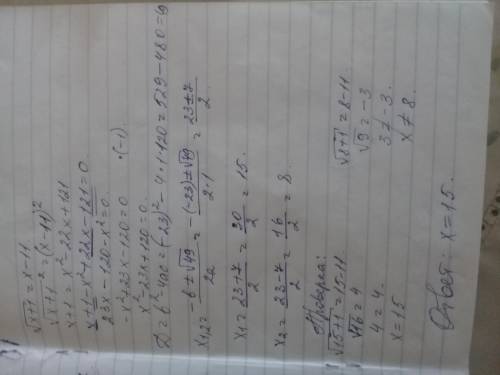 √x+1 = x-11
√x+1² = (x-11)²
x+1 = x²-22x+121
x+1-x²+22x-121=0
23x-120-x²=0
-x²+23x-120=0 ·(-1)
x²-23x+120=0
D=b²-4ac=(-23)²-4·1·120=529-480=49
x1,2= -b±√49/2a = -(-23)±√49/2·1 = 23±7/2
x1= 23+7/2 = 30/2 = 15.
x2= 23-7/2 = 16/2 = 8.
Проверка:
√15+1=15-11
√16=4
4=4.
x=15
√8+1=8-11
√9=-3
3≠-3.
x≠8.
Ответ: x=15.